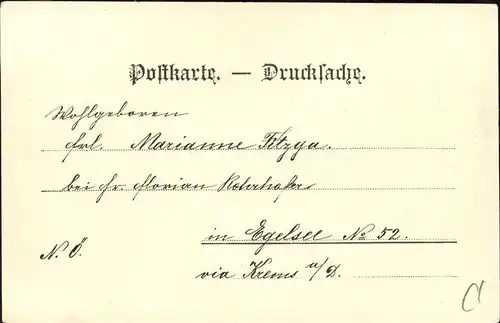 Postkarte. — Drucksache.
Wohlgeboren
Frl. Marianne Fitzga.
bei Hr. Florian Rohrhofer
in Egelsee No 52.
N. Ö.
via Krems a/D.